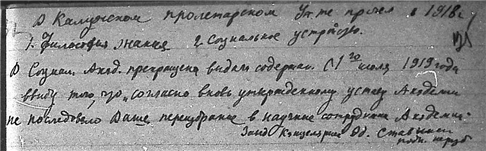 В Калужском пролетарском Ун-те прочел в 1918 г.
1. Философия знания 2. Социальное устройство.
В Социал. Акад. прекращена выдача содержан. С 1го июля 1919 года
ввиду того, что "согласно вновь утвержденному уставу Академии
не последовало Ваше переизбрание в научные сотрудники Академии"
Завед Канцелярией Эд. Ставший